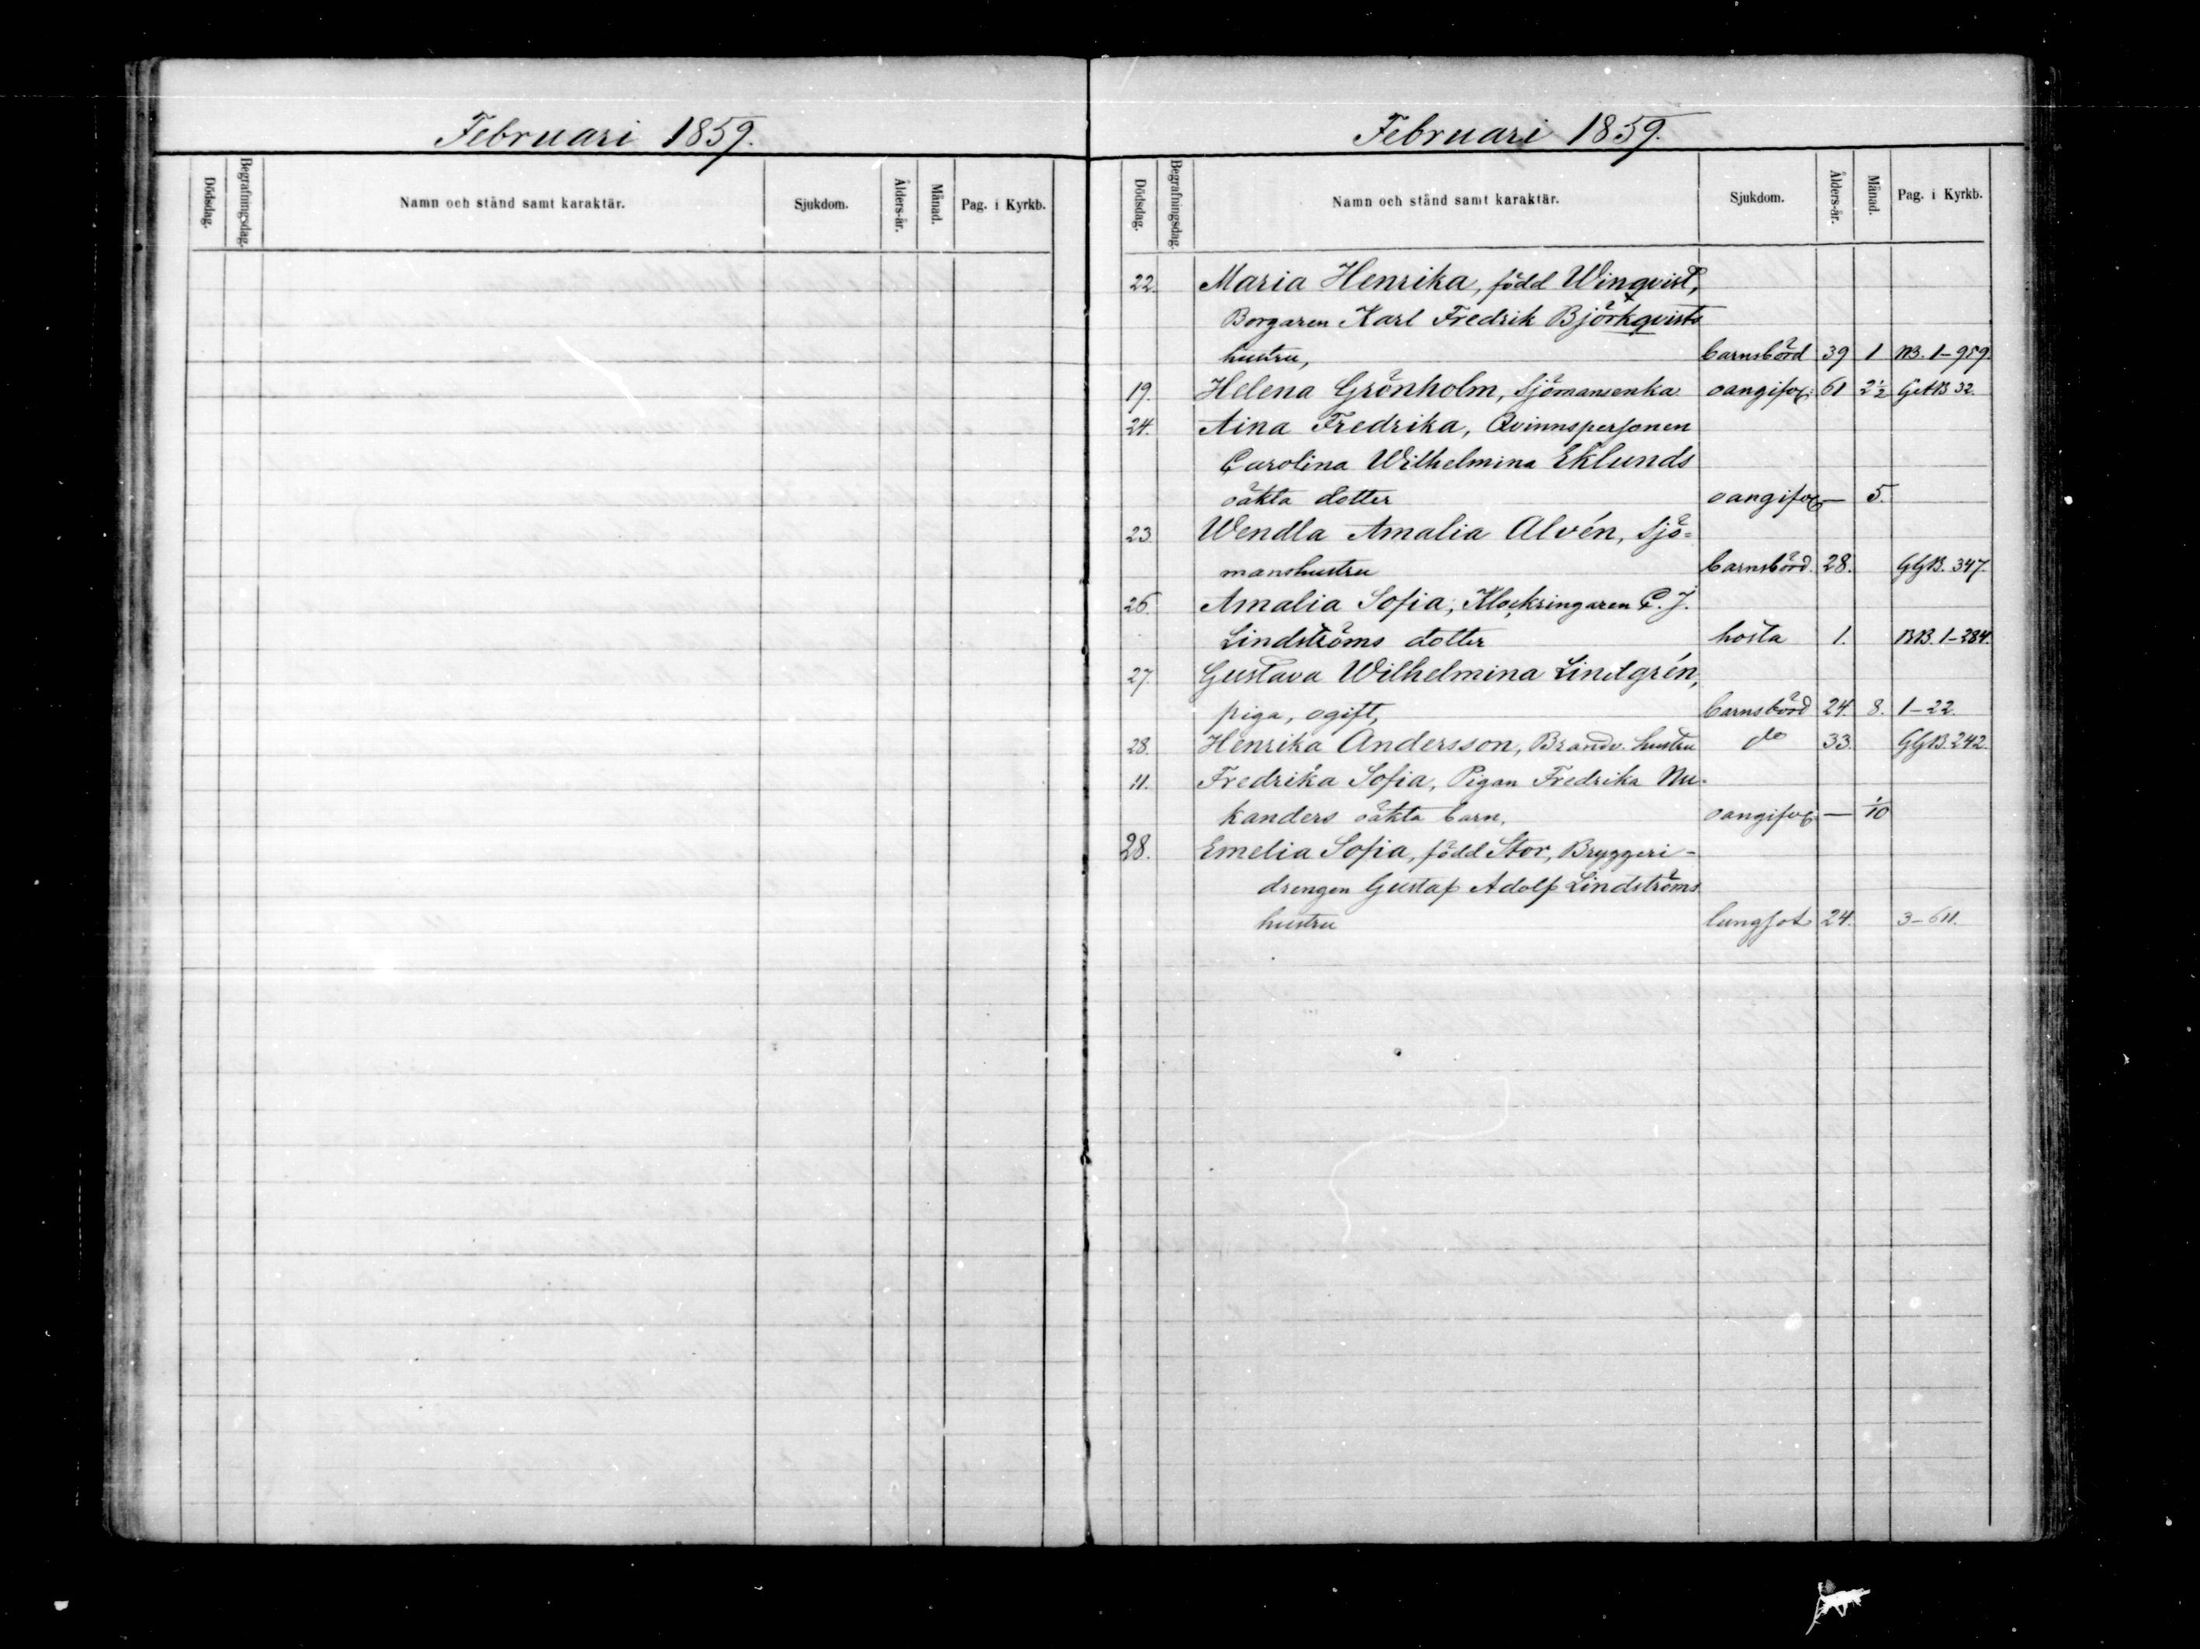 Februari 1859.
Dödsdag. Begrafningsdag. Namn och stånd samt karaktär. Sjukdom. Ålders-år. Månad. Pag. i Kyrkb.
Februari 1859.
Dödsdag. Begrafningsdag. Namn och stånd samt karaktär. Sjukdom. Ålders-år. Månad. Pag. i Kyrkb.
22. Maria Henrika, född Winqvist,
Borgaren Karl Fredrik Björkqvists
hustru, barnsbörd 39 1 NB. 1-959
19. Helena Grönholm, Sjömansenka oangifv. 61 2 1/2 32.
24. Aina Fredrika, Qvinnspersonen
Carolina Wilhelmina Eklunds
oäkta dotter oangifv. — 5.
23. Wendla Amalia Alvén, Sjö=
manshustru barnsbörd. 28. GGB. 347.
26. Amalia Sofia, Klockringaren C. J.
Lindströms dotter hosta 1. NB. 1-284.
27. Gustava Wilhelmina Lindgrén,
piga, ogift, barnsbörd 24. 8. 1-22.
28. Henrika Andersson, Brandv. hustru do 33. GGB. 242.
11. Fredrika Sofia, Pigan Fredrika Nu-
kanders oäkta barn. oangifv. — 1/10
28. Emelia Sofia, född Stor, Bryggeri-
drengen Gustaf Adolf Lindströms
hustru lungsot 24. 3-611.